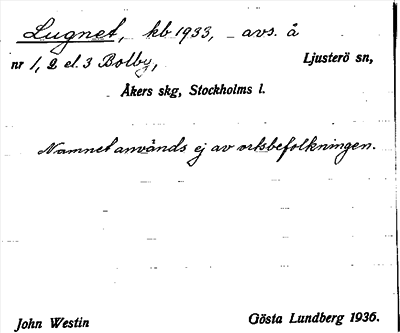 Lugnet, kb 1933, avs. å
nr 1, 2 el. 3 Bolby, Ljusterö sn,
Åkers skg, Stockholms l.
Namnet används ej av ortsbefolkningen.
John Westin Gösta Lundberg 1936.